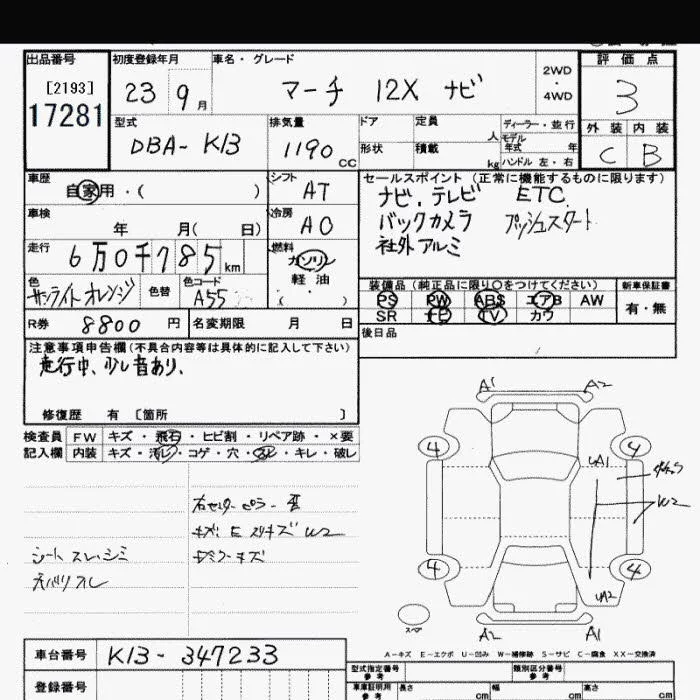 出品番号 初度登録年月 車名・グレード 評価点
[2193] 23 9月 マーチ 12X ナビ 2WD・4WD 3
17281
型式 排気量 ドア 定員 ディーラー・並行 外装 内装
DBA-K13 1190 CC 人 モデル年式 年 C B
形状 積載 kg ハンドル 左・右
車歴 シフト セールスポイント (正常に機能するものに限ります)
自家用・( ) AT ナビ、テレビ ETC
車検 冷房 バックカメラ プッシュスタート
年 月( 日) AC 社外アルミ
走行 燃料
6万0千785km ガソリン
軽油
( )
色 色替 色コード 装備品 (純正品に限り〇をつけてください) 新車保証書
サンライトオレンジ A55 PS PW ABS エアB AW 有・無
SR ナビ TV カワ
R券 8800円 名変期限 月 日 後日品
注意事項申告欄(不具合内容等は具体的に記入して下さい)
走行中、少し音あり、
修復歴 有 [箇所 ]
検査員 FW キズ・飛石・ヒビ割・リペア跡・×要
記入欄 内装 キズ・汚レ・コゲ・穴・スレ・キレ・破レ
A1 A2
4 4
A1
W2
キズ E スリキズ W2
シート スレ、シミ
4 4
A2
スペア
A2 A1
A-キズ E-エクボ U-凹み W-補修跡 S-サビ C-腐食 XX-交換済
車台番号 K13-347233
型式指定番号 類別区分番号
登録番号 車庫証明用参考 長さ cm 幅参考 cm 高さ参考 cm